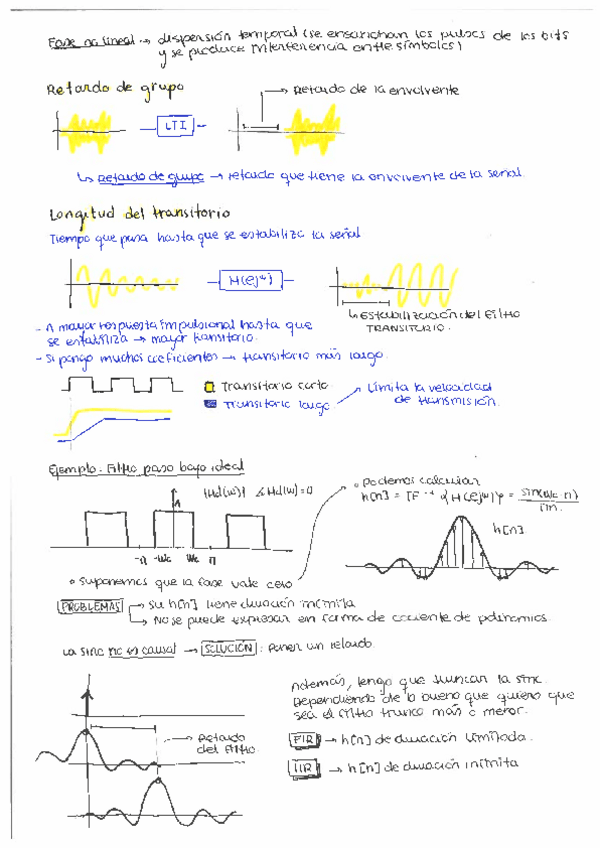 Fase no lineal → dispersión temporal (se ensanchan los pulsos de los bits
y se produce interferencia entre símbolos)
Retardo de grupo
→ Retardo de la envolvente
LTI
↳ Retardo de grupo → retardo que tiene la envolvente de la señal.
Longitud del transitorio
Tiempo que pasa hasta que se estabiliza la señal
H(e^jω)
↳ Estabilización del filtro
TRANSITORIO.
- A mayor respuesta impulsional hasta que
se estabiliza → mayor transitorio.
- Si pongo muchos coeficientes → transitorio más largo.
Transitorio corto
Transitorio largo
Limita la velocidad
de transmisión.
Ejemplo: Filtro paso bajo ideal
|Hd(ω)| ∡Hd(ω)=0
1
-π -ωc ωc π
• Podemos calcular
h[n] = F⁻¹{H(e^jω)} = sin(ωc·n)/πn
h[n]
• Suponemos que la fase vale cero
PROBLEMAS → Su h[n] tiene duración infinita
→ No se puede expresar en forma de cociente de polinomios.
La sinc no es causal → SOLUCIÓN: Poner un retardo.
→ Retardo
del filtro.
Además, tengo que truncar la sinc.
Dependiendo de lo bueno que quiero que
sea el filtro trunco más o menos.
FIR → h[n] de duración limitada.
IIR → h[n] de duración infinita